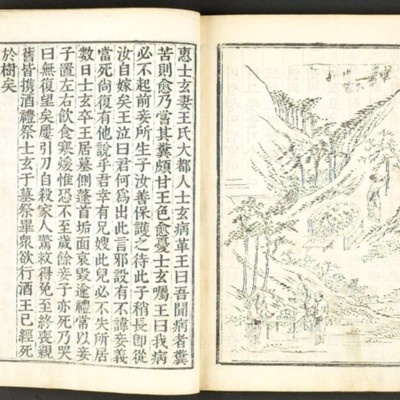 惠士玄妻王氏大都人士玄病革王曰吾聞病者糞
苦則愈乃嘗其糞頗甘王色愈憂士玄囑王曰我病
必不起前妾所生子汝善保護之待此子稍長即從
汝自嫁矣王泣曰君何為出此言邪設有不諱妾義
當死尚復有他說乎君幸有兄嫂此兒必不失所居
數日士玄卒王居墓側蓬首垢面哀毀逾禮常以妾
子置左右飲食寒煖惟恐不至歲餘妾子亦死乃哭
曰無復望矣屢引刀自殺家人驚救得免至終喪親
舊皆携酒禮祭士玄于墓祭畢衆欲行酒王已經死
於樹矣